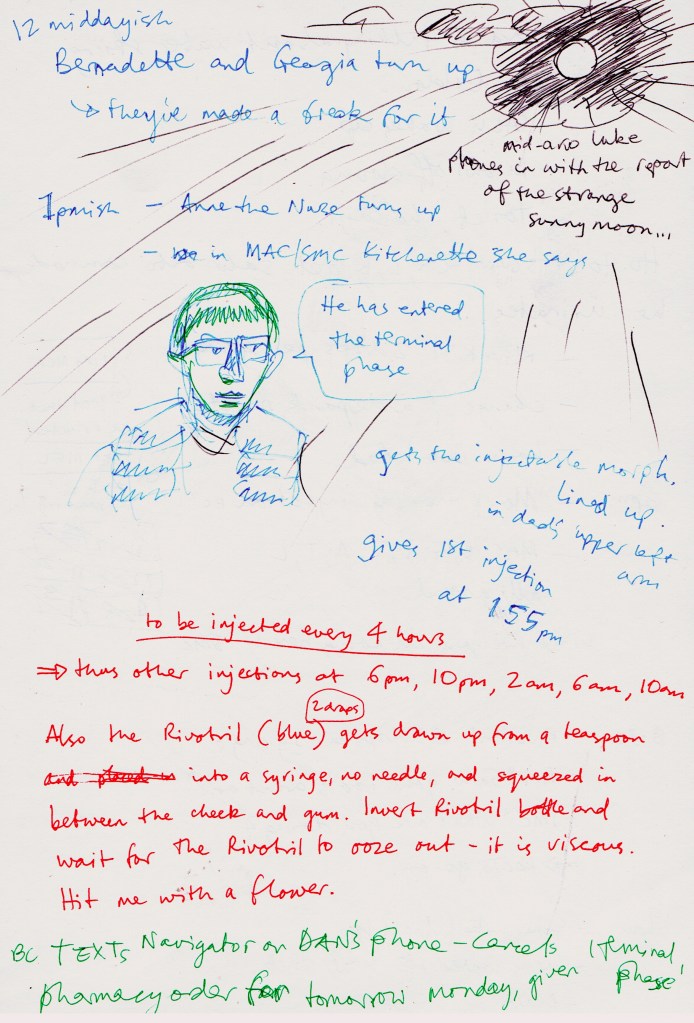 12 middayish
Bernadette and Georgia turn up
↳ they've made a break for it
mid-arvo Luke
phones in with the report
of the strange
sunny moon...
1pmish - Anne the Nurse turns up
- in MAC/SMC Kitchenette she says
He has entered
the terminal
phase
gets the injectable morph.
lined up.
in dad's upper left
arm
gives 1st injection
at 1.55 pm
to be injected every 4 hours
⇒ thus other injections at 6pm, 10pm, 2am, 6am, 10am
2 drops
Also the Rivotril (blue) gets drawn up from a teaspoon
and placed in into a syringe, no needle, and squeezed in
between the cheek and gum. Invert Rivotril bottle and
wait for the Rivotril to ooze out - it is viscous.
Hit me with a flower.
BC TEXTS Navigator on DAN'S phone - Cancels
pharmacy order for tomorrow monday, given 'terminal phase'